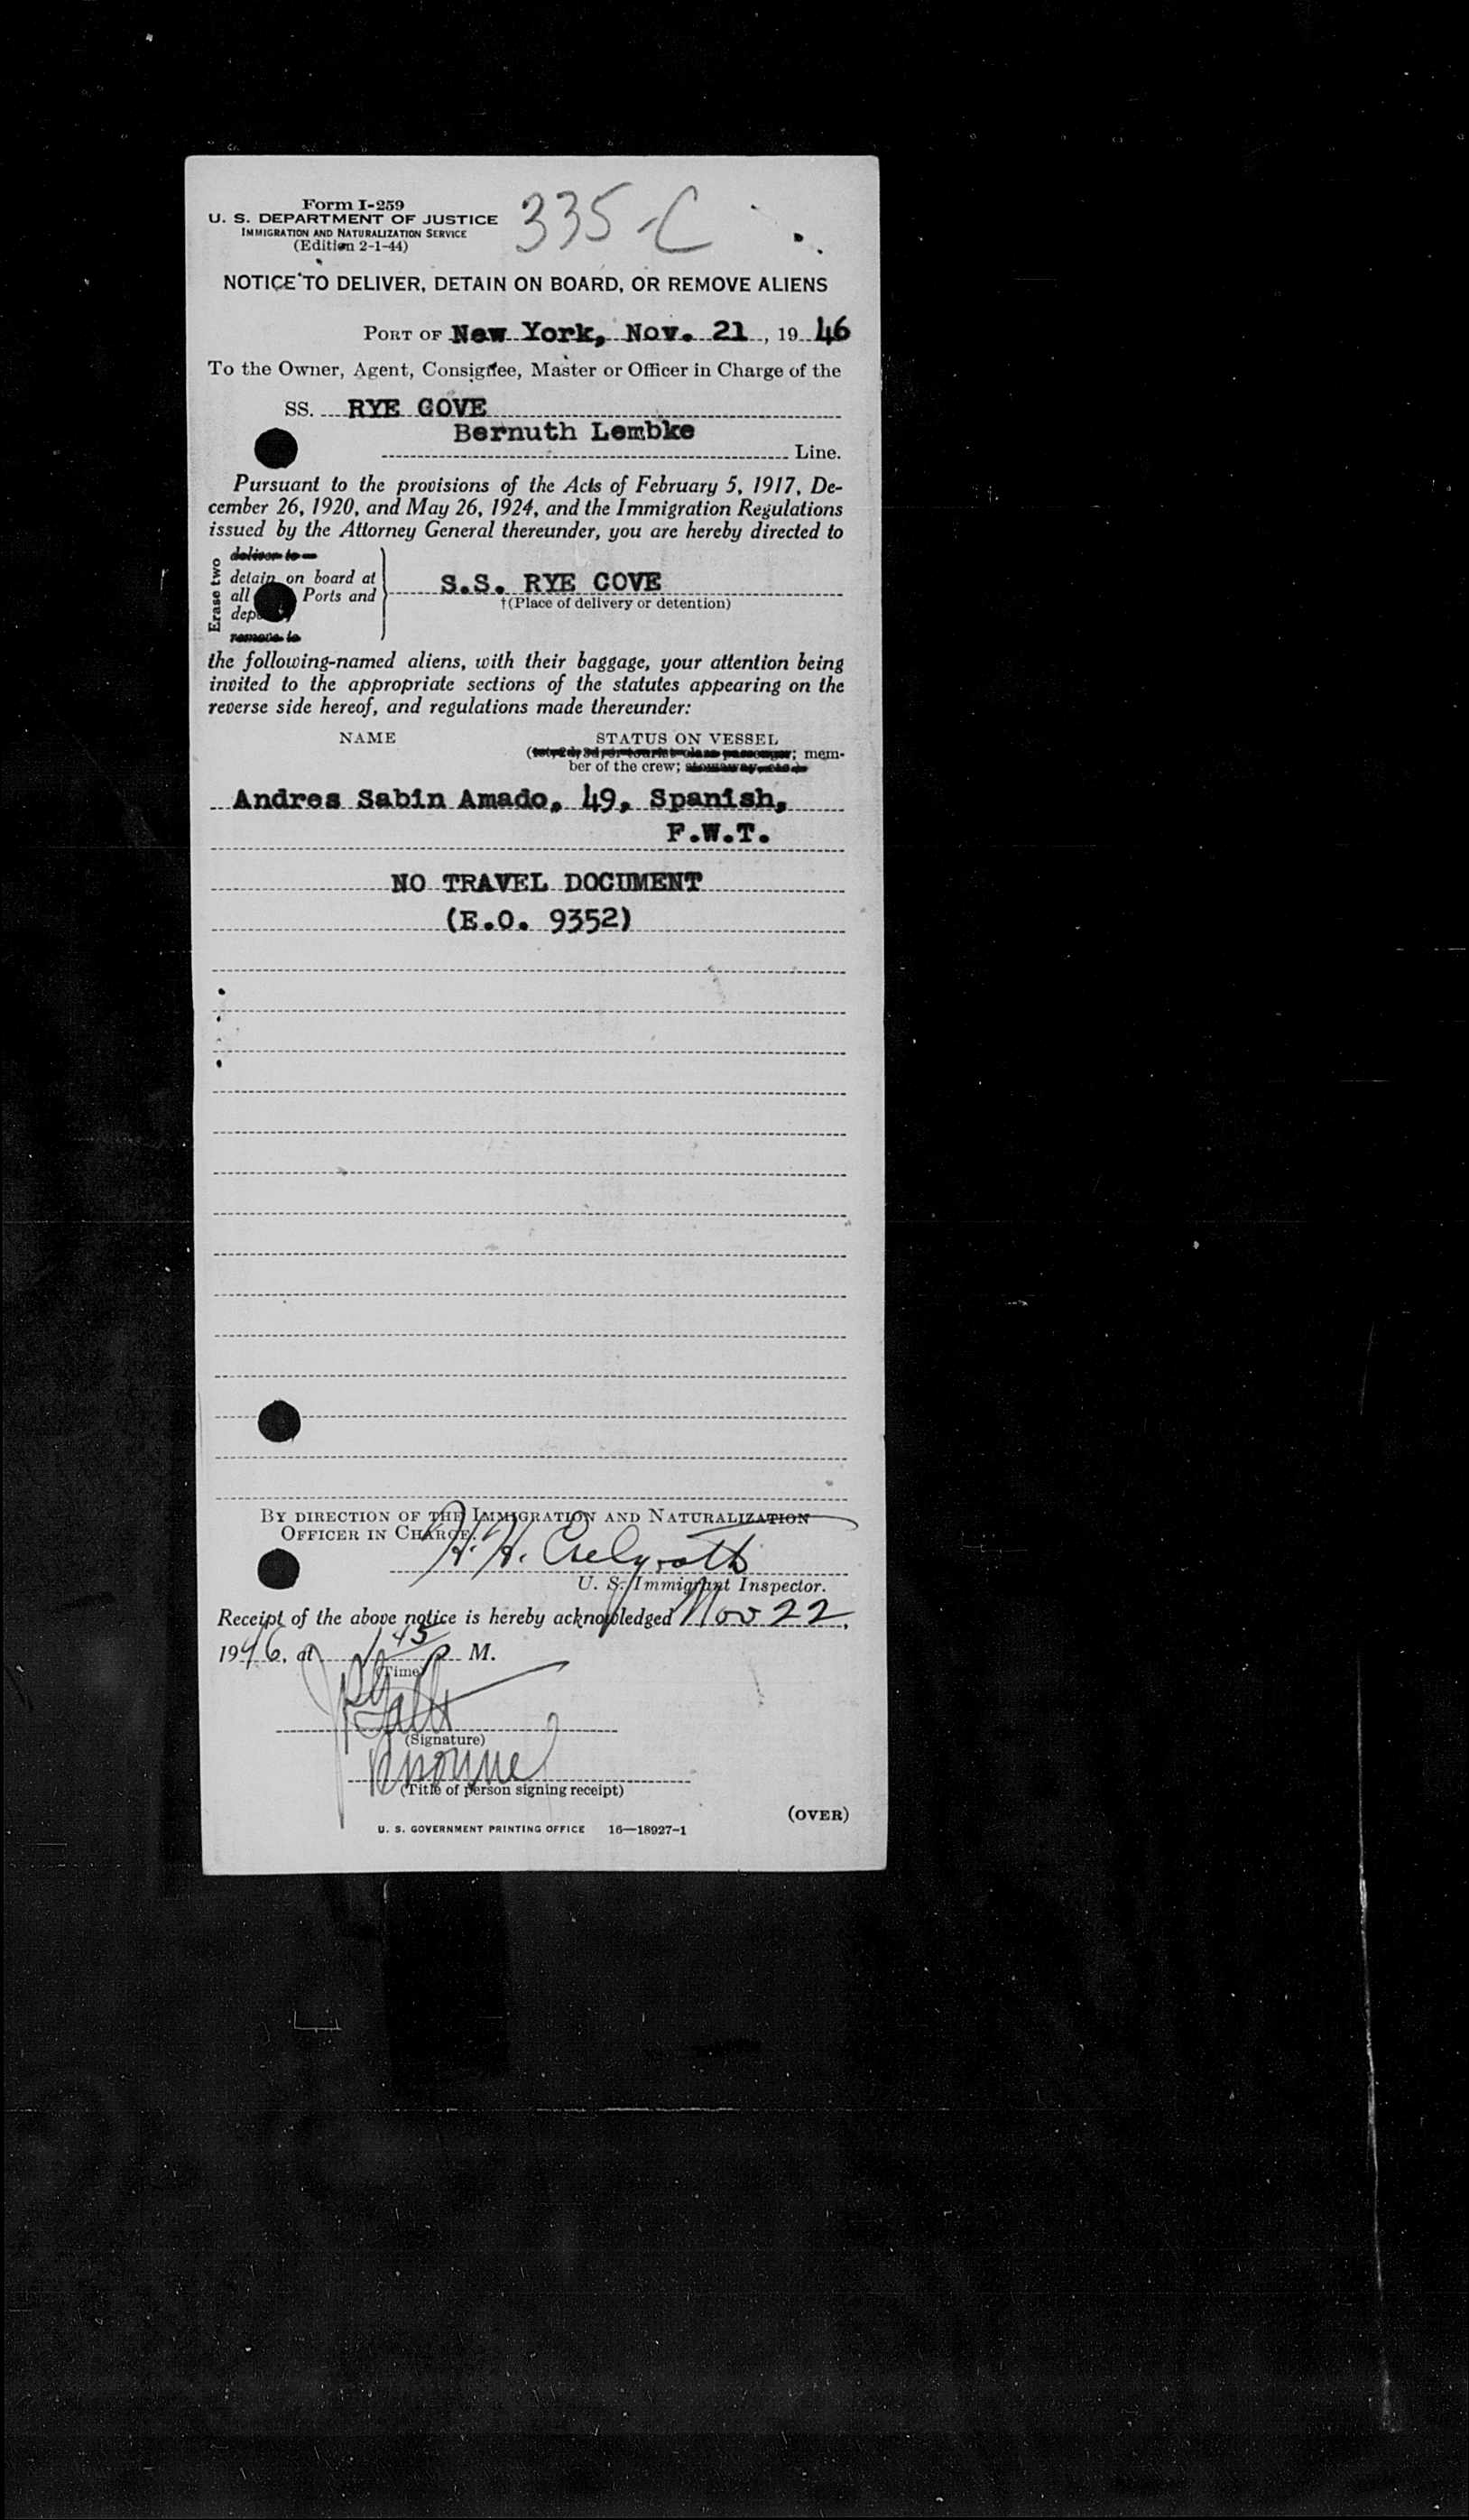 Form I-259
U. S. DEPARTMENT OF JUSTICE
IMMIGRATION AND NATURALIZATION SERVICE
(Edition 2-1-44)
335-C
NOTICE TO DELIVER, DETAIN ON BOARD, OR REMOVE ALIENS
PORT OF New York, Nov. 21, 1946
To the Owner, Agent, Consignee, Master or Officer in Charge of the
SS. RYE COVE
Bernuth Lembke
Line.
Pursuant to the provisions of the Acts of February 5, 1917, De-
cember 26, 1920, and May 26, 1924, and the Immigration Regulations
issued by the Attorney General thereunder, you are hereby directed to
Erase two
deliver to
detain on board at
all Ports and
remove to
S.S. RYE COVE
†(Place of delivery or detention)
the following-named aliens, with their baggage, your attention being
invited to the appropriate sections of the statutes appearing on the
reverse side hereof, and regulations made thereunder:
NAME STATUS ON VESSEL
(1st, 2d, 3d, or tourist class passenger; mem-
ber of the crew; stowaway, etc.)
Andres Sabin Amado, 49, Spanish,
F.W.T.
NO TRAVEL DOCUMENT
(E.O. 9352)
BY DIRECTION OF THE IMMIGRATION AND NATURALIZATION
OFFICER IN CHARGE.
H. H.
U. S. Immigrant Inspector.
Receipt of the above notice is hereby acknowledged Nov 22,
1946, at 1 45 P M.
(Time)
(Signature)
(Title of person signing receipt)
(OVER)
U. S. GOVERNMENT PRINTING OFFICE 16—18927-1